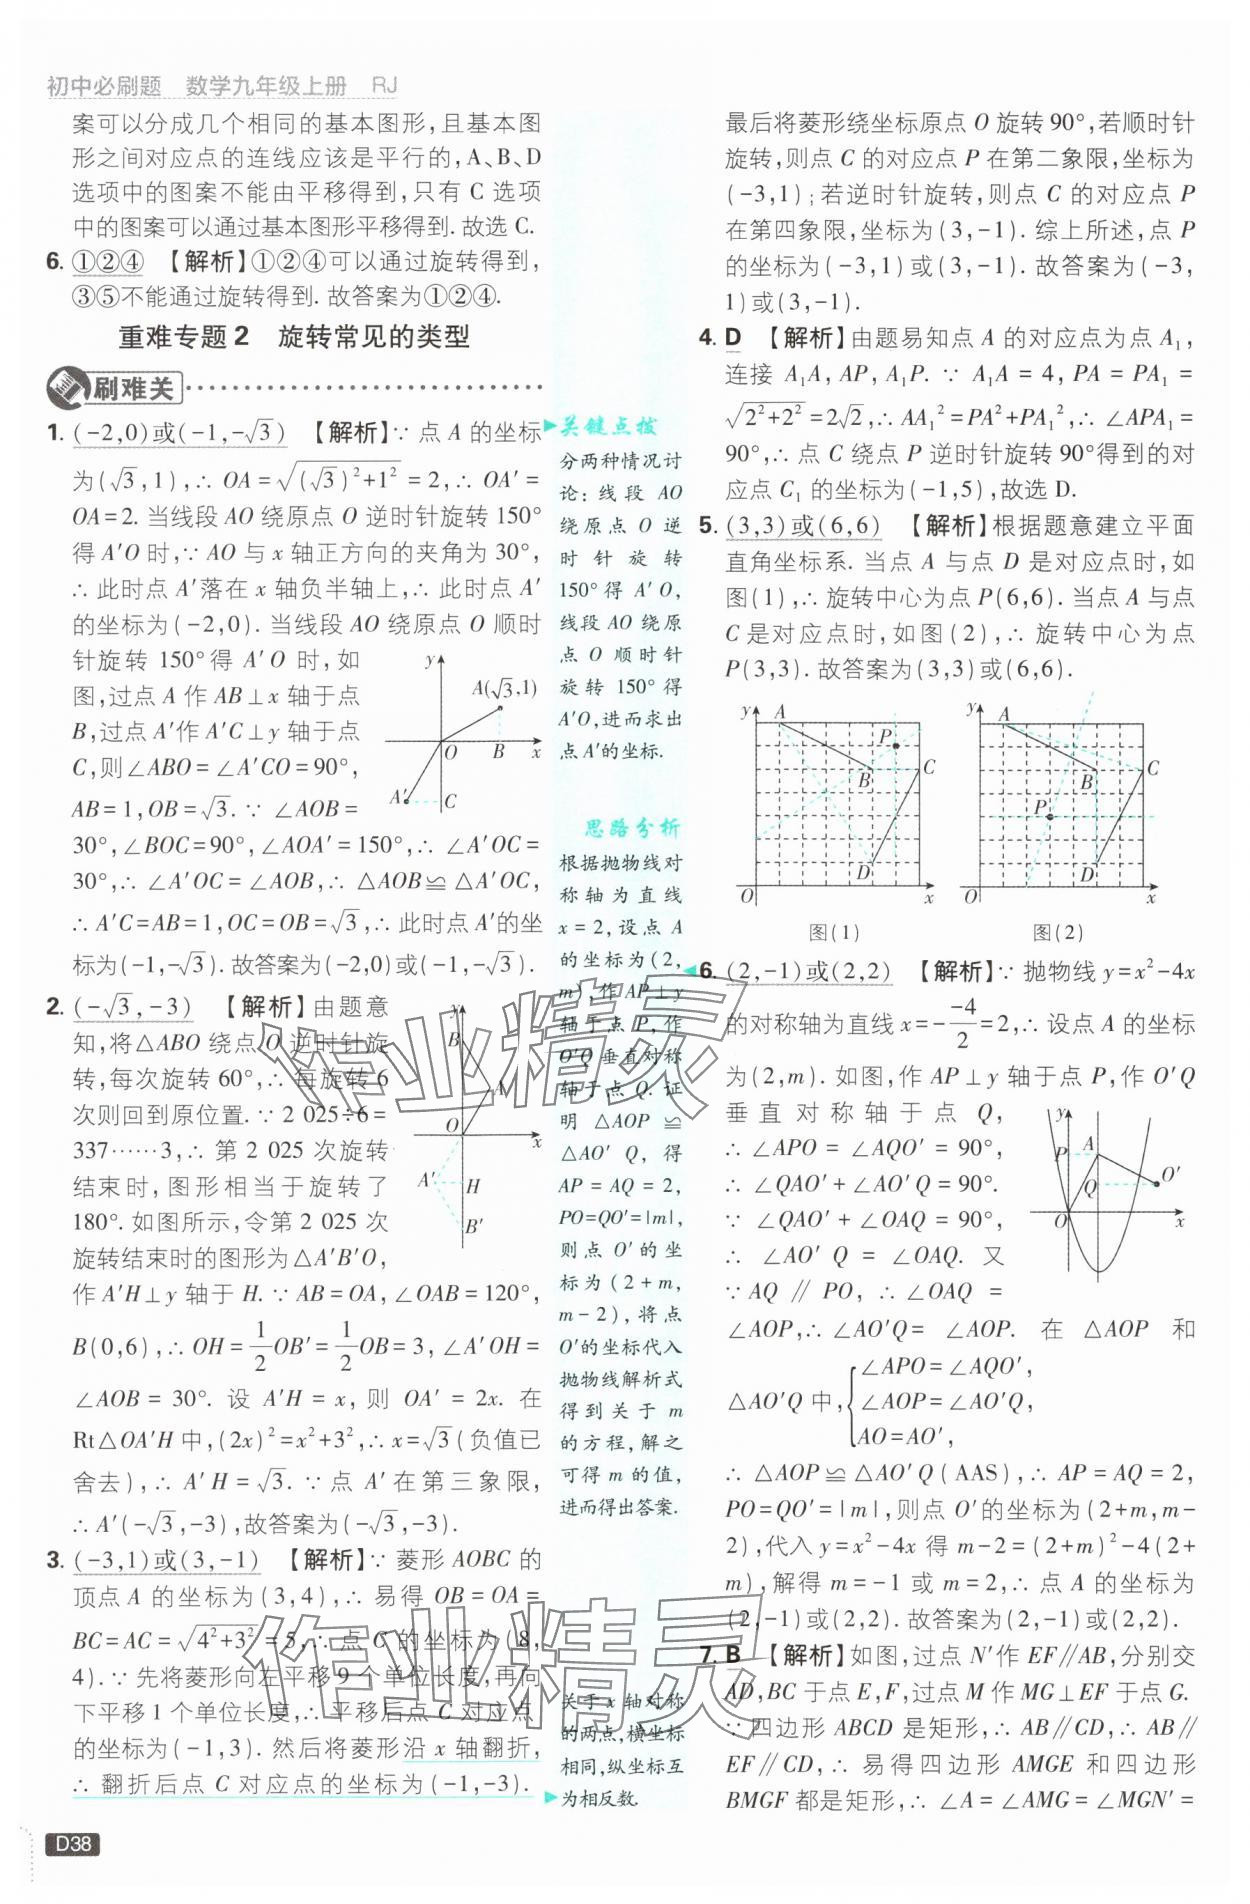 初中必刷题 数学九年级上册 RJ
案可以分成几个相同的基本图形,且基本图
形之间对应点的连线应该是平行的,A、B、D
选项中的图案不能由平移得到,只有 C 选项
中的图案可以通过基本图形平移得到. 故选 C.
6. ①②④ 【解析】①②④可以通过旋转得到,
③⑤不能通过旋转得到. 故答案为①②④.
重难专题2 旋转常见的类型
刷难关
1. (-2,0)或(-1,-√3) 【解析】∵ 点 A 的坐标
为(√3,1),∴ OA=√((√3)²+1²)=2,∴ OA′=
OA=2. 当线段 AO 绕原点 O 逆时针旋转 150°
得 A′O 时,∵ AO 与 x 轴正方向的夹角为 30°,
∴ 此时点 A′落在 x 轴负半轴上,∴ 此时点 A′
的坐标为(-2,0). 当线段 AO 绕原点 O 顺时
针旋转 150°得 A′O 时,如
图,过点 A 作 AB⊥x 轴于点
B,过点 A′作 A′C⊥y 轴于点
C,则∠ABO=∠A′CO=90°,
AB=1,OB=√3. ∵ ∠AOB=
30°,∠BOC=90°,∠AOA′=150°,∴ ∠A′OC=
30°,∴ ∠A′OC=∠AOB,∴ △AOB≌△A′OC,
∴ A′C=AB=1,OC=OB=√3,∴ 此时点 A′的坐
标为(-1,-√3). 故答案为(-2,0)或(-1,-√3).
y
A(√3,1)
O B x
A′ C
2. (-√3,-3) 【解析】由题意
知,将△ABO 绕点 O 逆时针旋
转,每次旋转 60°,∴ 每旋转 6
次则回到原位置. ∵ 2 025÷6=
337……3,∴ 第 2 025 次旋转
结束时,图形相当于旋转了
180°. 如图所示,令第 2 025 次
旋转结束时的图形为△A′B′O,
作 A′H⊥y 轴于 H. ∵ AB=OA,∠OAB=120°,
B(0,6),∴ OH=1/2OB′=1/2OB=3,∠A′OH=
∠AOB=30°. 设 A′H=x,则 OA′=2x. 在
Rt△OA′H 中,(2x)²=x²+3²,∴ x=√3(负值已
舍去),∴ A′H=√3. ∵ 点 A′在第三象限,
∴ A′(-√3,-3),故答案为(-√3,-3).
y
B
A
O x
A′ H
B′
3. (-3,1)或(3,-1) 【解析】∵ 菱形 AOBC 的
顶点 A 的坐标为(3,4),∴ 易得 OB=OA=
BC=AC=√(4²+3²)=5,∴ 点 C 的坐标为(8,
4). ∵ 先将菱形向左平移 9 个单位长度,再向
下平移 1 个单位长度,∴ 平移后点 C 对应点
的坐标为(-1,3). 然后将菱形沿 x 轴翻折,
∴ 翻折后点 C 对应点的坐标为(-1,-3).
关键点拨
分两种情况讨
论:线段 AO
绕原点 O 逆
时针旋转
150°得 A′O,
线段 AO 绕原
点 O 顺时针
旋转 150°得
A′O,进而求出
点 A′的坐标.
思路分析
根据抛物线对
称轴为直线
x=2,设点 A
的坐标为(2,
m),作 AP⊥y
轴于点 P,作
O′Q 垂直对称
轴于点 Q. 证
明 △AOP≌
△AO′Q,得
AP=AQ=2,
PO=QO′=|m|,
则点 O′的坐
标为(2+m,
m-2),将点
O′的坐标代入
抛物线解析式
得到关于 m
的方程,解之
可得 m 的值,
进而得出答案.
关于 x 轴对称
的两点,横坐标
相同,纵坐标互
为相反数.
最后将菱形绕坐标原点 O 旋转 90°,若顺时针
旋转,则点 C 的对应点 P 在第二象限,坐标为
(-3,1);若逆时针旋转,则点 C 的对应点 P
在第四象限,坐标为(3,-1). 综上所述,点 P
的坐标为(-3,1)或(3,-1). 故答案为(-3,
1)或(3,-1).
4. D 【解析】由题易知点 A 的对应点为点 A₁,
连接 A₁A,AP,A₁P. ∵ A₁A=4,PA=PA₁=
√(2²+2²)=2√2,∴ AA₁²=PA²+PA₁²,∴ ∠APA₁=
90°,∴ 点 C 绕点 P 逆时针旋转 90°得到的对
应点 C₁ 的坐标为(-1,5),故选 D.
5. (3,3)或(6,6) 【解析】根据题意建立平面
直角坐标系. 当点 A 与点 D 是对应点时,如
图(1),∴ 旋转中心为点 P(6,6). 当点 A 与点
C 是对应点时,如图(2),∴ 旋转中心为点
P(3,3). 故答案为(3,3)或(6,6).
y A P B C D O x
图(1)
y A B C P D O x
图(2)
6. (2,-1)或(2,2) 【解析】∵ 抛物线 y=x²-4x
的对称轴为直线 x=-(-4)/2=2,∴ 设点 A 的坐标
为(2,m). 如图,作 AP⊥y 轴于点 P,作 O′Q
垂直对称轴于点 Q,
∴ ∠APO=∠AQO′=90°,
∴ ∠QAO′+∠AO′Q=90°.
∵ ∠QAO′+∠OAQ=90°,
∴ ∠AO′Q=∠OAQ. 又
∵ AQ∥PO,∴ ∠OAQ=
∠AOP,∴ ∠AO′Q=∠AOP. 在 △AOP 和
△AO′Q 中,{∠APO=∠AQO′,
∠AOP=∠AO′Q,
AO=AO′,
∴ △AOP≌△AO′Q(AAS),∴ AP=AQ=2,
PO=QO′=|m|,则点 O′的坐标为(2+m,m-
2),代入 y=x²-4x 得 m-2=(2+m)²-4(2+
m),解得 m=-1 或 m=2,∴ 点 A 的坐标为
(2,-1)或(2,2). 故答案为(2,-1)或(2,2).
y
P A
Q O′
O x
7. B 【解析】如图,过点 N′作 EF∥AB,分别交
AD,BC 于点 E,F,过点 M 作 MG⊥EF 于点 G.
∵ 四边形 ABCD 是矩形,∴ AB∥CD,∴ AB∥
EF∥CD,∴ 易得四边形 AMGE 和四边形
BMGF 都是矩形,∴ ∠A=∠AMG=∠MGN′=
D38
作业精灵
作业精灵